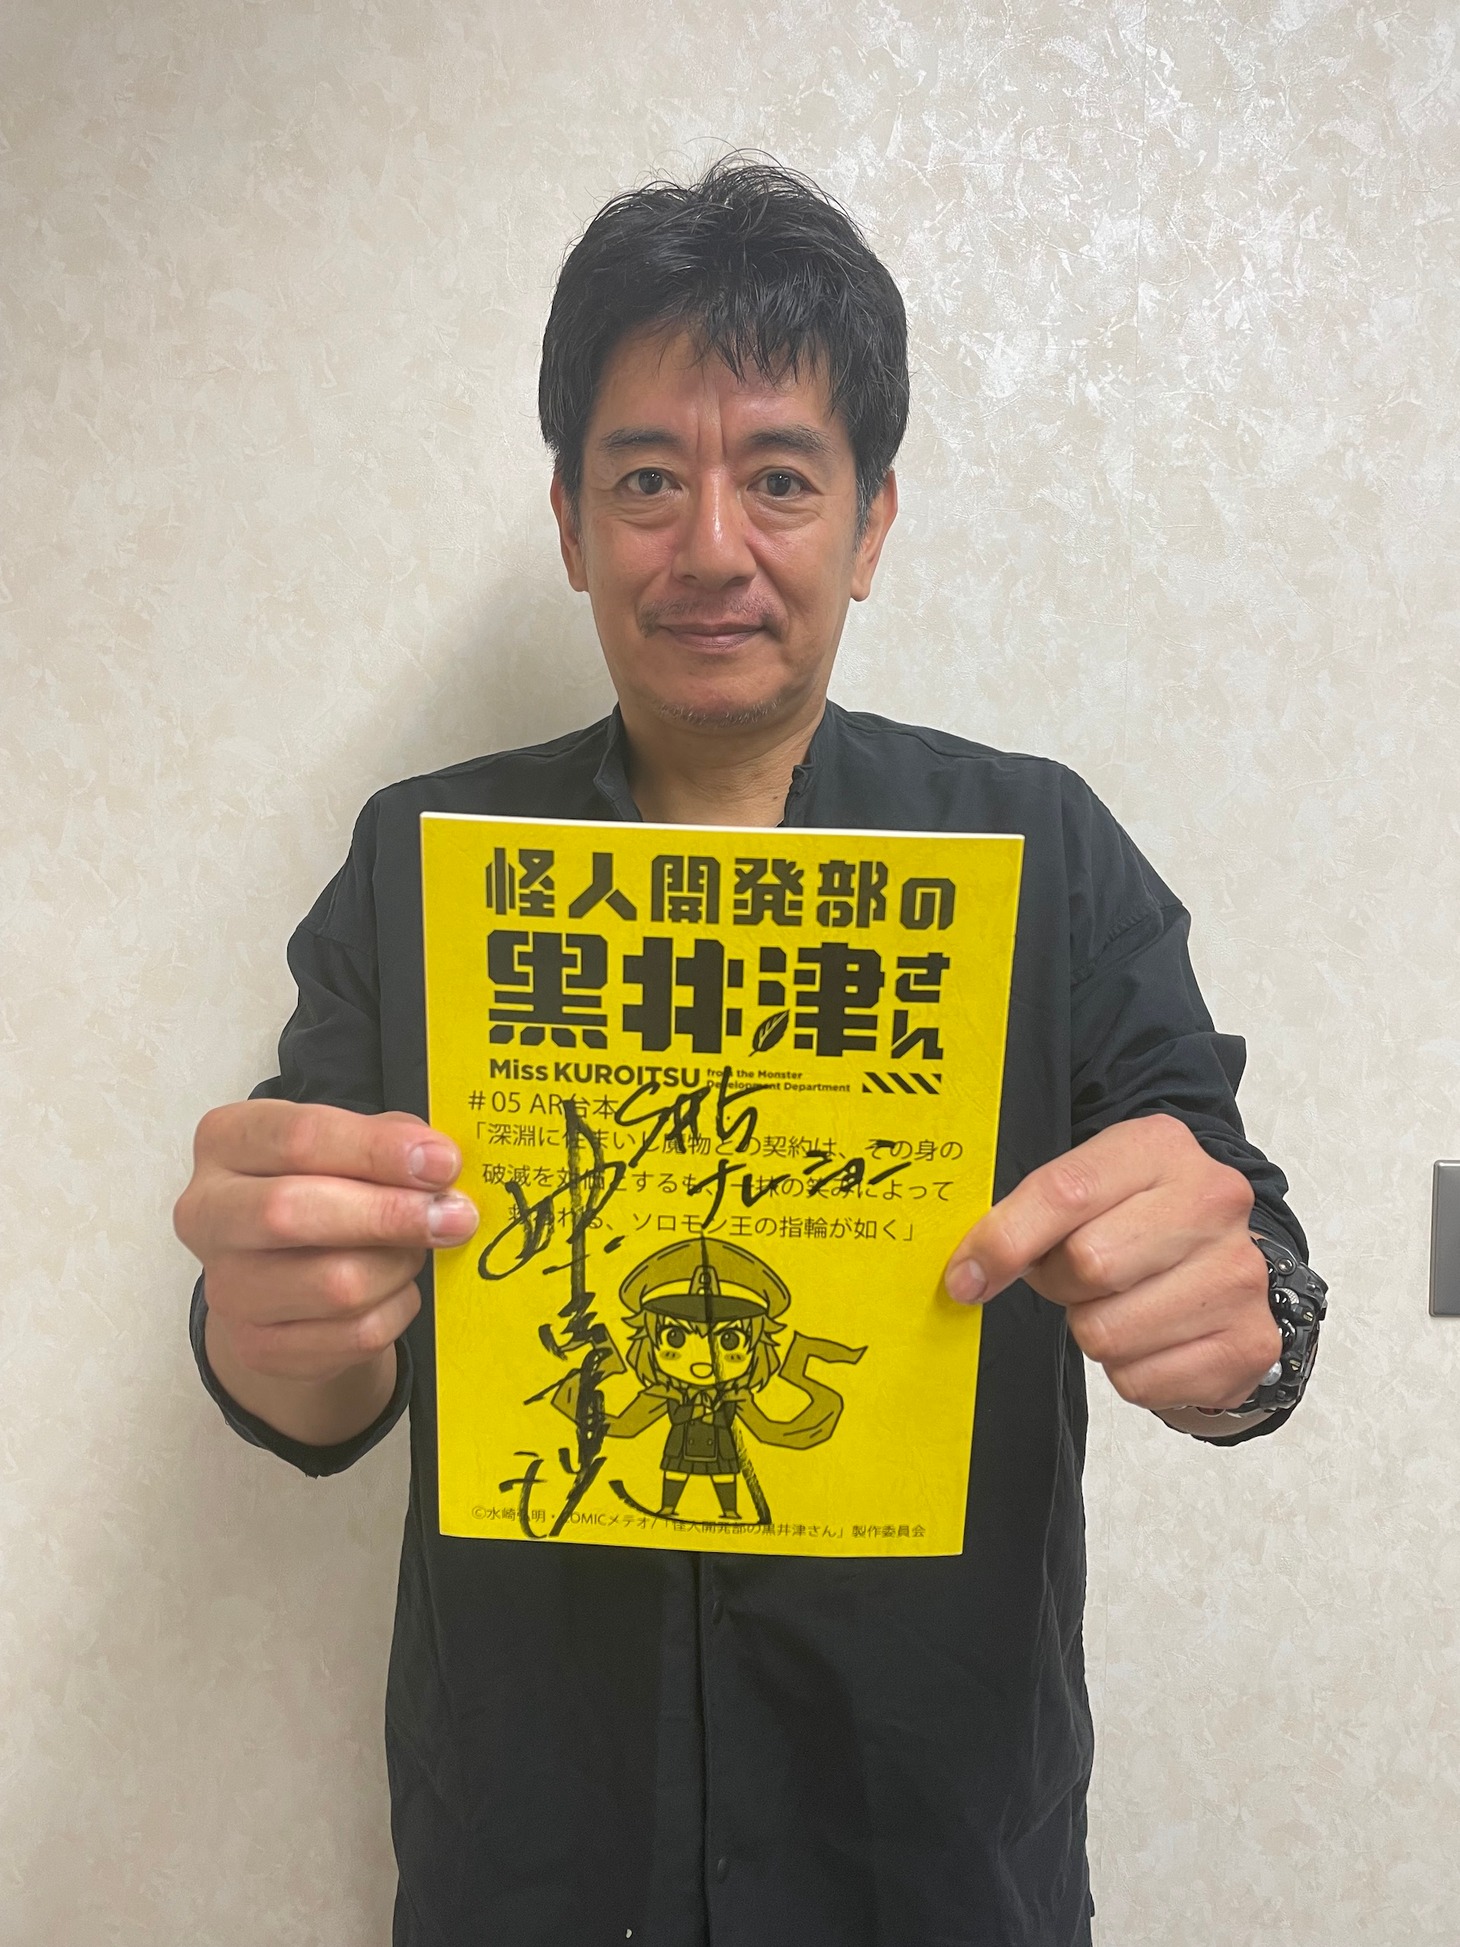 怪人開発部の
黒井津さん
Miss KUROITSU from the Monster Development Department
#05 AR台本
「深淵に住まいし魔物との契約は、その身の
破滅を対価とするも、一抹の笑みによって
救われる、ソロモン王の指輪が如く」
ナレーション
5
©水崎弘明・COMICメテオ/「怪人開発部の黒井津さん」製作委員会